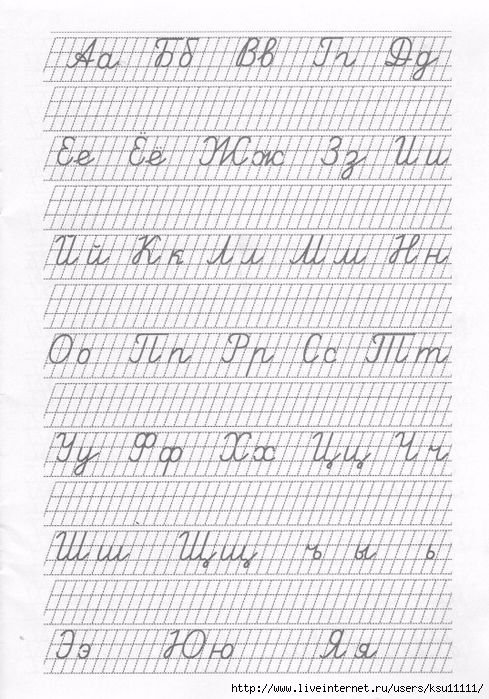 Аа Бб Вв Гг Дд
Ее Ёё Жж Зз Ии
Йй Кк Лл Мм Нн
Оо Пп Рр Сс Тт
Уу Фф Хх Цц Чч
Шш Щщ ъ ы ь
Ээ Юю Яя
http://www.liveinternet.ru/users/ksu11111/